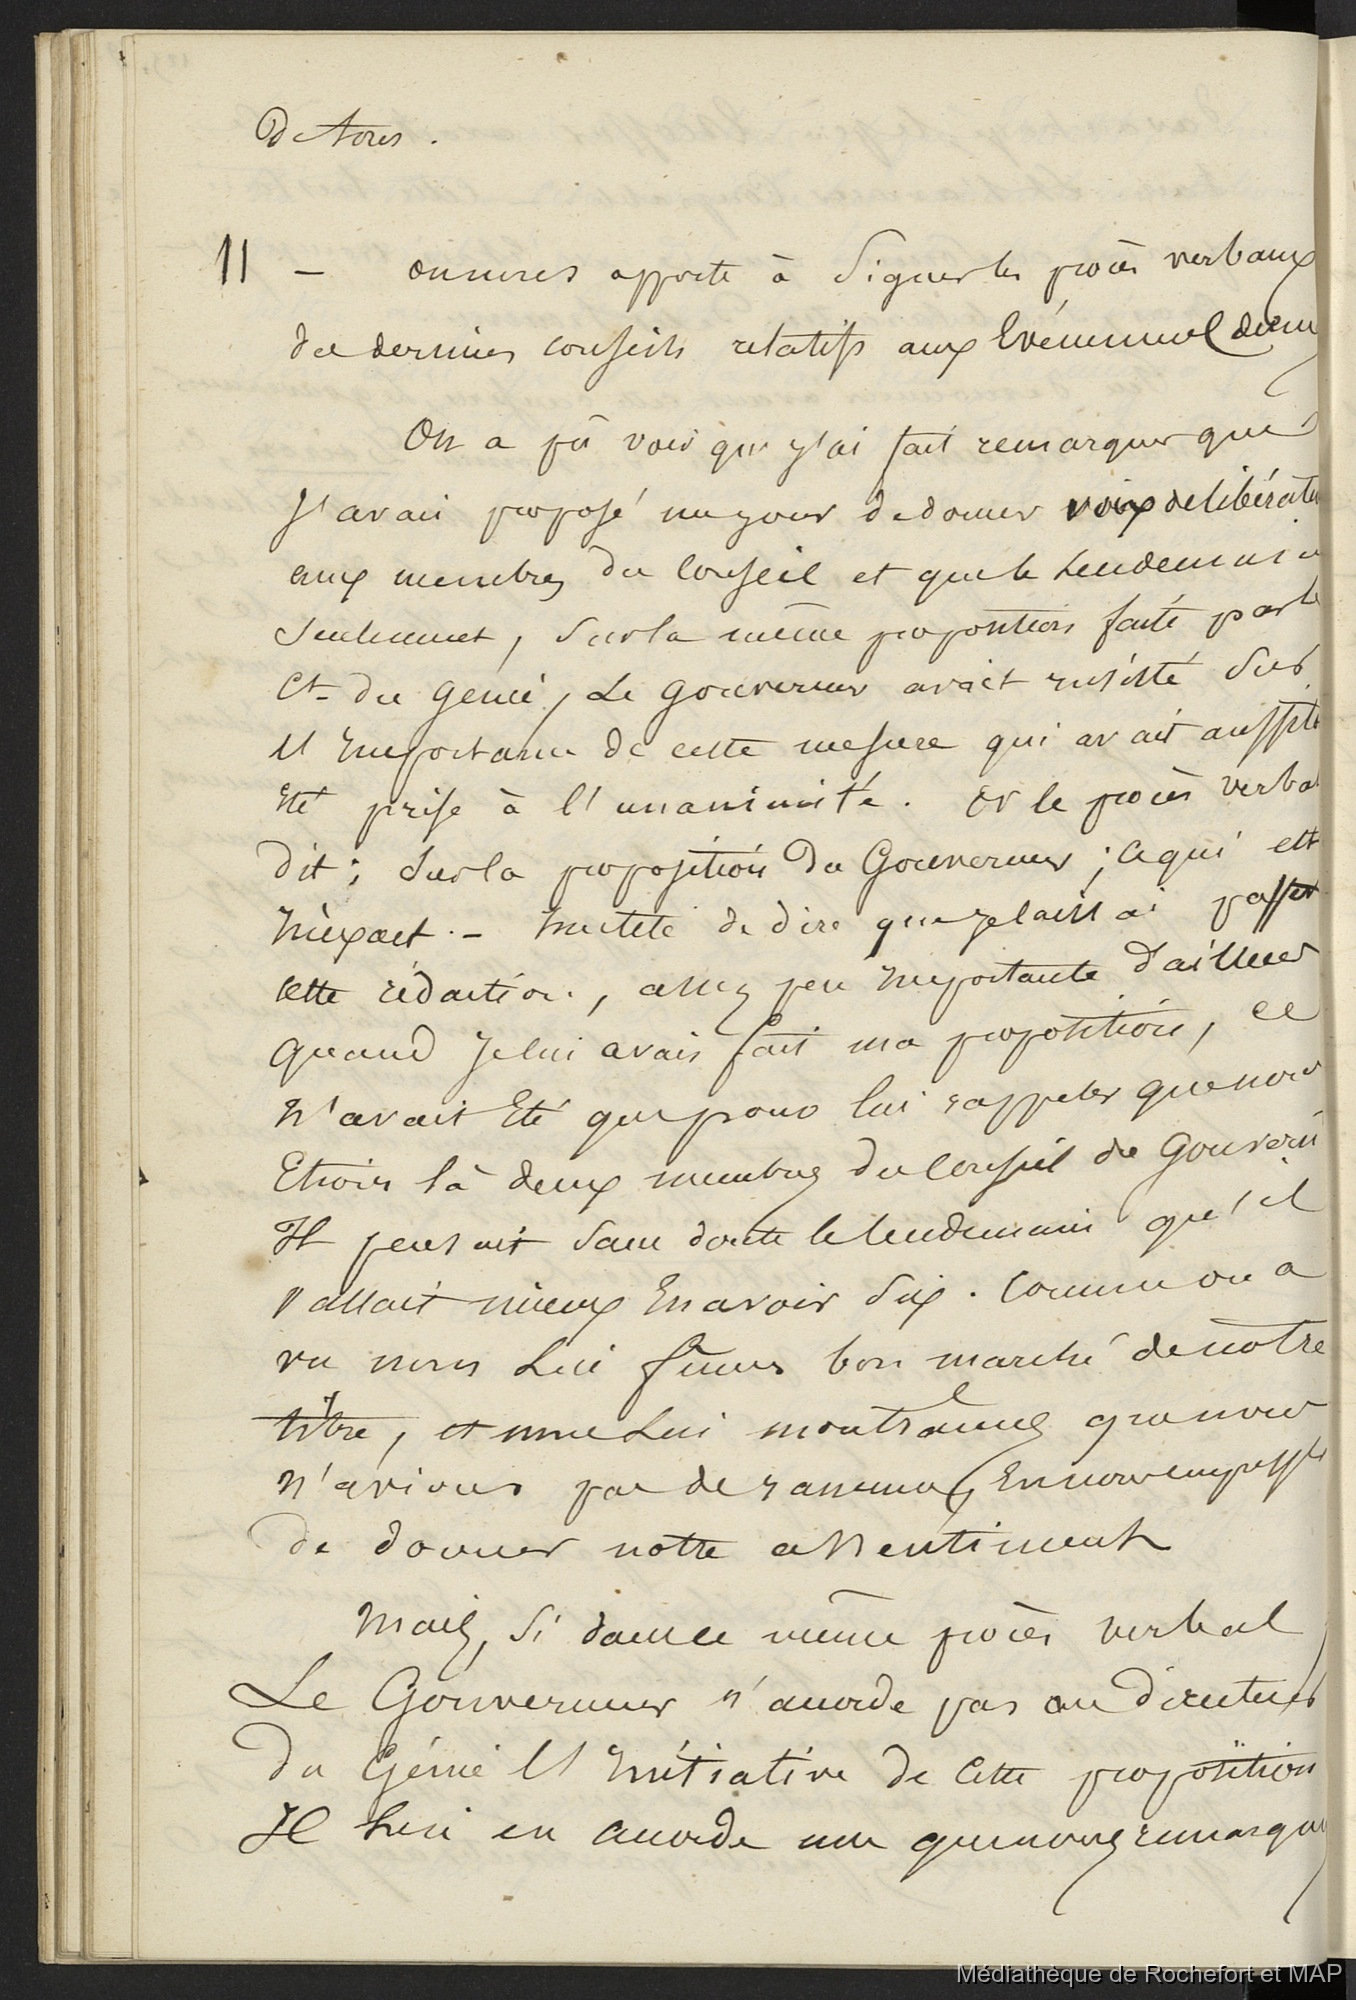 de Aores.
11 — on nous apporte à signer les procès verbaux
des derniers conseils relatifs aux Evénements
On a pû voir que j'ai fait remarquer que
J'avais proposé un jour de donner voix délibérati
aux membres du conseil et que le lendemain
seulement, sur la même proposition faite par le
Ct. du génie, Le gouverneur avait insisté sur
l'Importance de cette mesure qui avait aussitô
Eté prise à l'unanimité. Or le procès verbal
dit; sur la proposition du Gouverneur; ce qui est
Inéxact. — Inutile de dire que je laissai passer
cette rédaction, assez peu importante d'ailleurs
quand Je lui avais fait ma proposition, ce
N'avait Eté que pour lui rappeler que nous
Etions là deux membres du Conseil de Gouvern
Il pensait sans doute le lendemain qu'il
Vallait mieux En avoir six. Comme on a
vu nous Lui fîmes bon marché de notre
titre, et nous Lui montrâmes que nous
N'avions pas de rancune, En nous empress
de donner notre assentiment
Mais, si dans ce même procès verbal
Le Gouverneur n'accorde pas au directeur
du Génie l'Initiative de cette proposition
Il Lui en accorde une que nous remarqu
Médiathèque de Rochefort et MAP